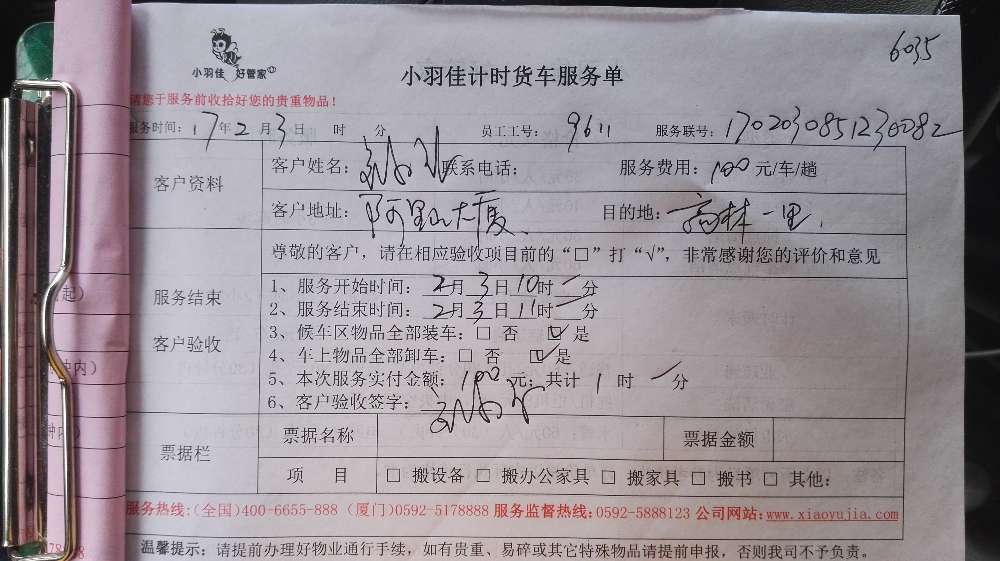 6035
小羽佳 好管家
小羽佳计时货车服务单
请您于服务前收拾好您的贵重物品！
服务时间：17年2月3日 时 分 员工工号：9611 服务联号：1702030851230082
客户资料
客户姓名： 联系电话： 服务费用：100元/车/趟
客户地址：阿里山大厦 目的地：高林一里
尊敬的客户，请在相应验收项目前的“□”打“√”，非常感谢您的评价和意见
服务结束
客户验收
1、服务开始时间：2月3日10时一分
2、服务结束时间：2月3日11时一分
3、候车区物品全部装车：□ 否 ☑ 是
4、车上物品全部卸车：□ 否 ☑ 是
5、本次服务实付金额：100元；共计 1 时 一 分
6、客户验收签字：
票据栏
票据名称 票据金额
项 目 □ 搬设备 □ 搬办公家具 □ 搬家具 □ 搬书 □ 其他：
服务热线：(全国)400-6655-888 (厦门)0592-5178888 服务监督热线：0592-5888123 公司网站：www.xiaoyujia.com
温馨提示：请提前办理好物业通行手续，如有贵重、易碎或其它特殊物品请提前申报，否则我司不予负责。